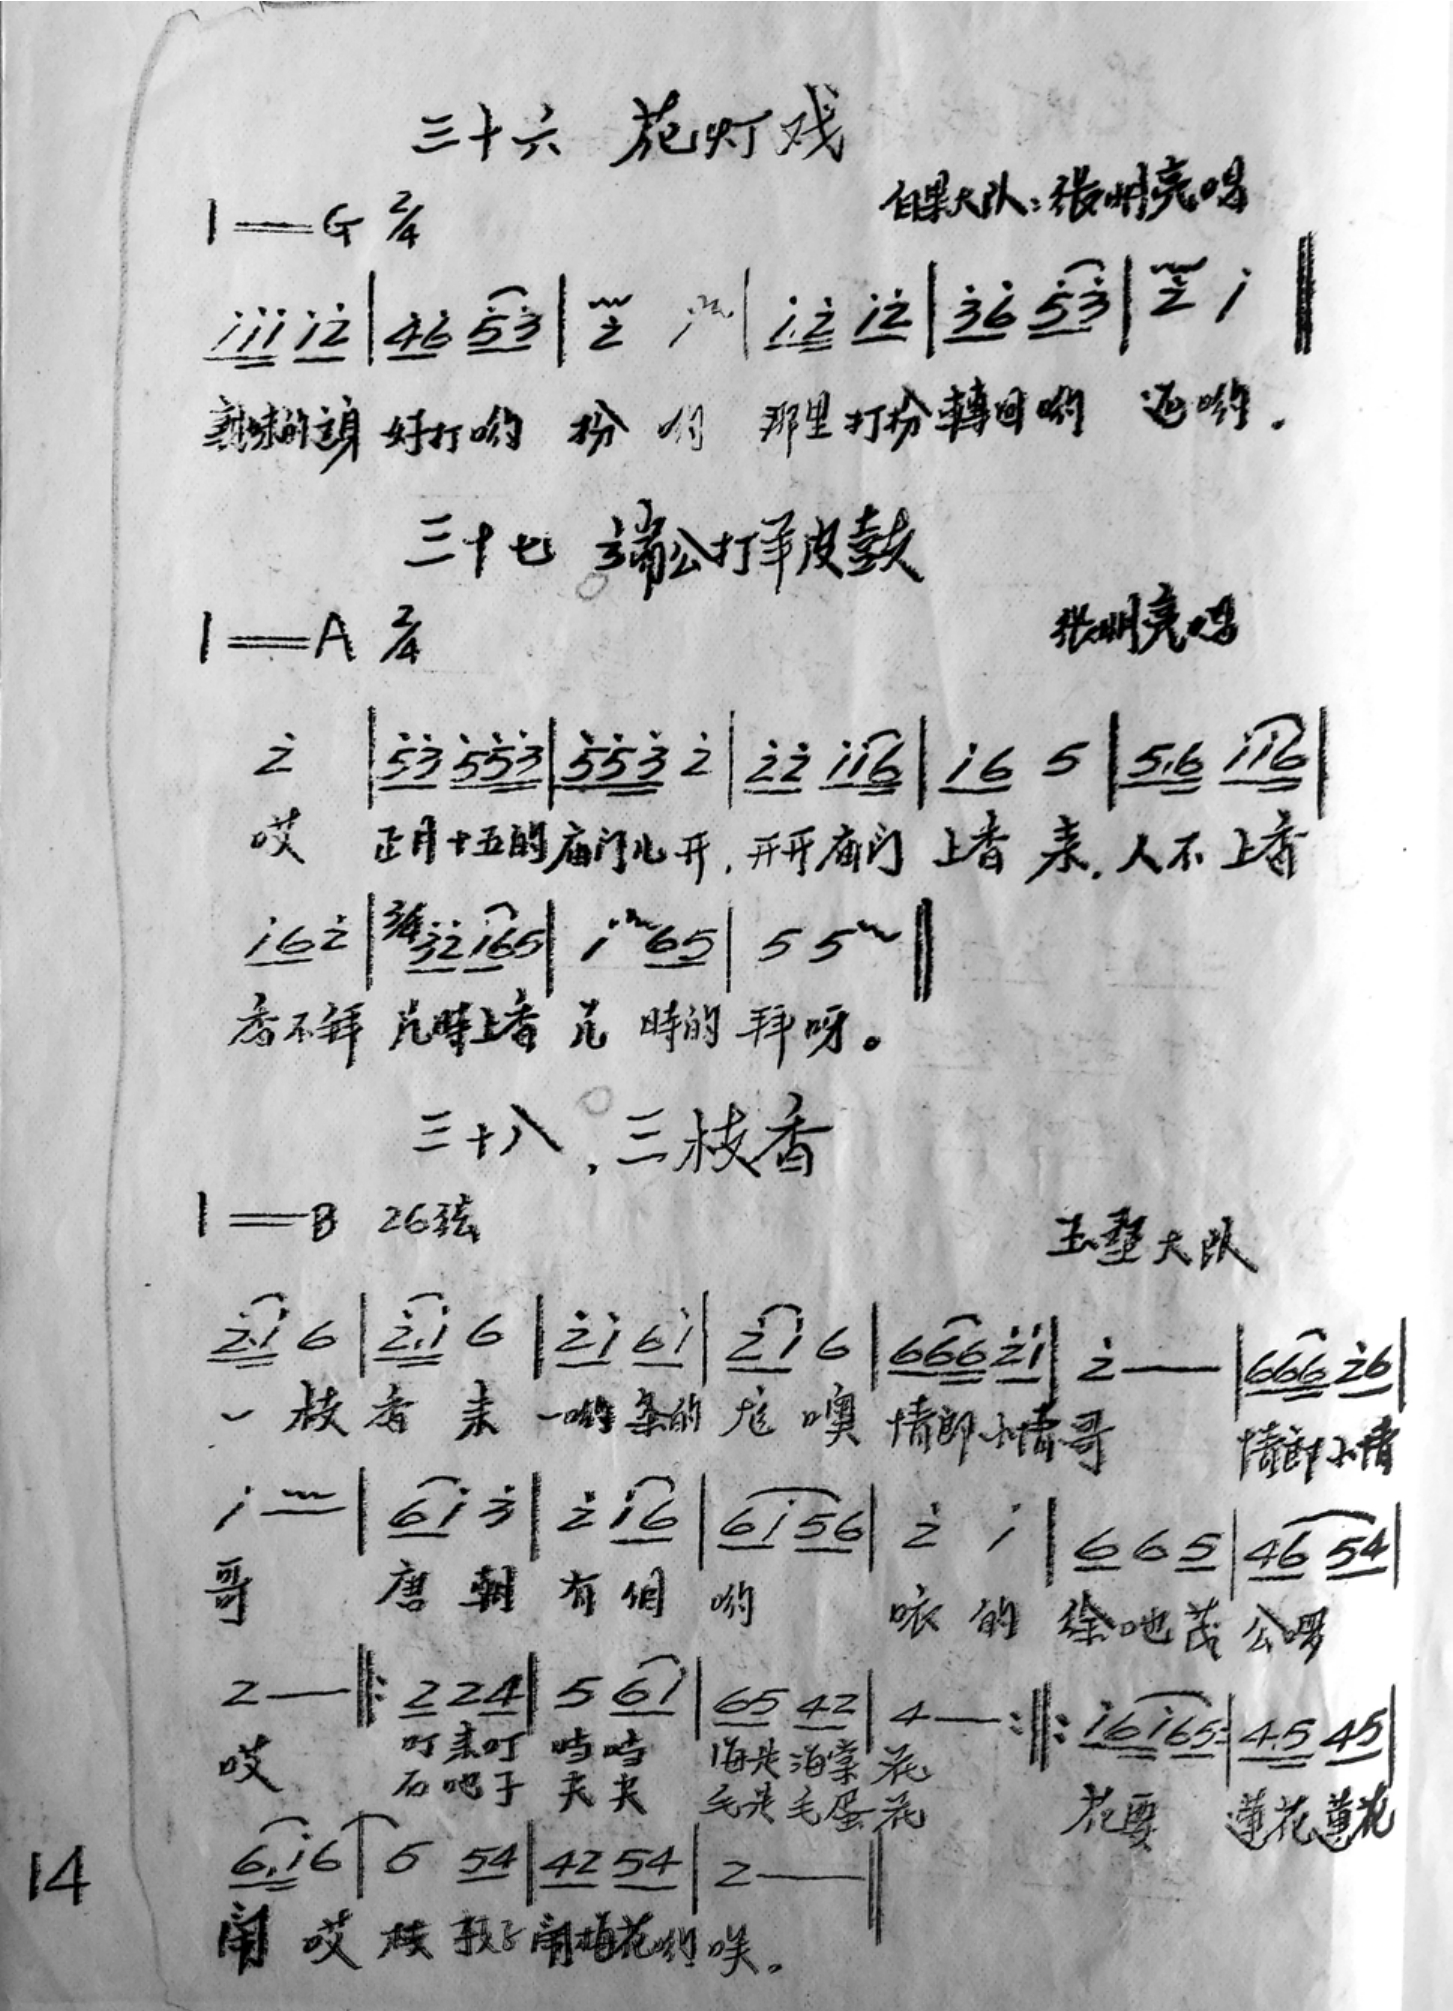 三十六 花灯戏
1=G 2/4
白果大队：张明亮唱
i̇i̇i̇ i̇2̇ | 4̇6̇ 5̇3̇ | 2̇ i̇ | i̇.2̇ i̇2̇ | 3̇6̇ 5̇3̇ | 2̇ i̇ ‖
好打哟 扮 哟 那里打扮轉回哟 返哟.
三十七 端公打羊皮鼓
1=A 2/4
张明亮唱
2̇ | 5̇3̇ 5̇5̇3̇ | 5̇5̇3̇ 2̇ | 2̇2̇ i̇i̇6 | i̇6 5 | 5.6 i̇i̇6 |
哎 正月十五的庙门儿开，开开庙门 上香 来. 人不上香
i̇62̇ | 3/4 3̇2̇i̇65 | i̇ 65 | 5 5 ‖
香不拜 几時上香 几 時的 拜呀。
三十八、三枝香
1=B 26弦
玉墅大队
2̇.i̇ 6 | 2̇.i̇ 6 | 2̇i̇ 6i̇ | 2̇i̇ 6 | 666 2̇i̇ | 2̇ — | 666 2̇6 |
一 枝 香 来 一哟条的 龙 噢 情郎小情哥 情郎小情
i̇ — | 6i̇ 3̇ | 2̇ i̇6 | 6i̇56 | 2̇ i̇ | 6 6 5 | 46 54 |
哥 唐 朝 有 個 哟 咳 的 徐吔茂 公啰
2 — ‖: 2 24 | 5 6i̇ | 65 42 | 4 — :‖: i̇6i̇65 | 4.5 45 |
哎 叮来叮 当当 海夹海棠 花 花要 蓮花蓮花
石吧子 夹夹 毛夹毛蛋花
6.i̇6 | 6 54 | 42 54 | 2 — ‖
闹 哎 枝 闹梅花哟 唉。
14